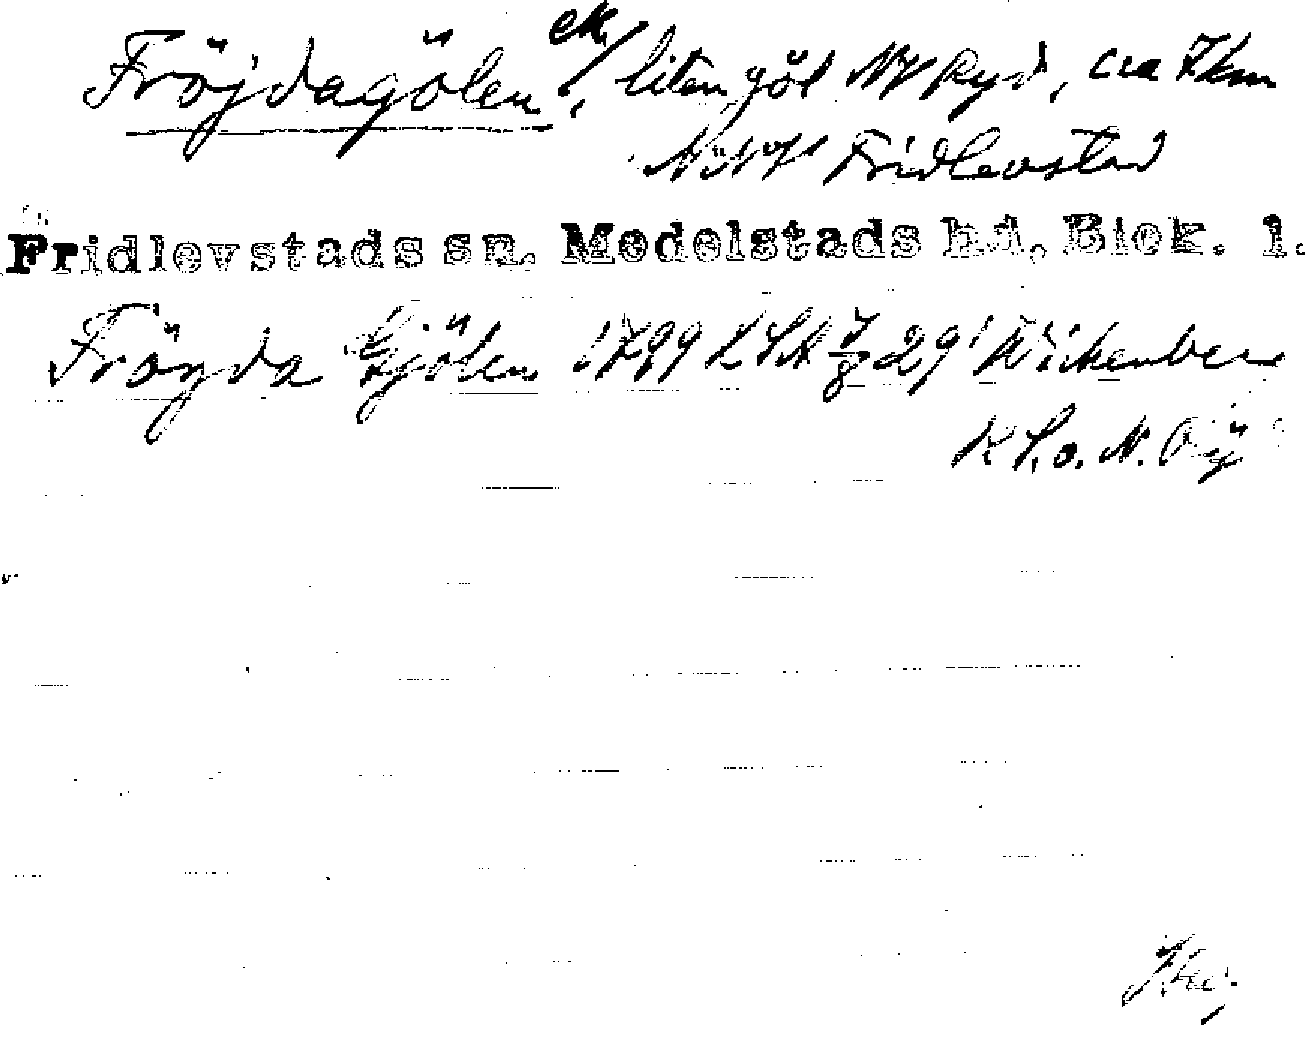 Fröjdagölen ek/, liten göl NV Ryd, cra 7 km
NNV Fridlevstad
Fridlevstads sn. Medelstads hd, Blek. l.
Fröyda Gjölen 1799 LSA 29 Wikenber
N.